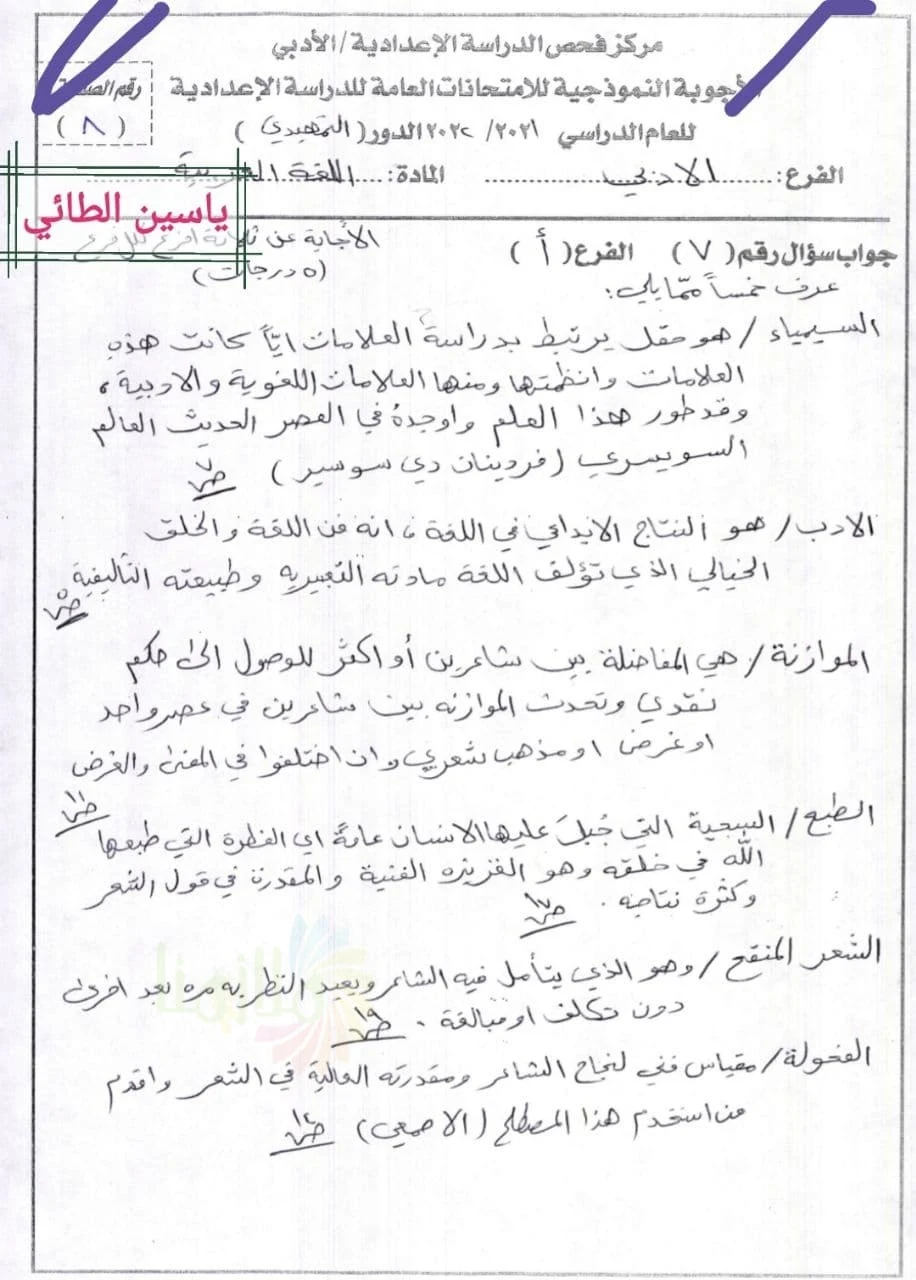 مركز فحص الدراسة الإعدادية/الأدبي
الأجوبة النموذجية للامتحانات العامة للدراسة الإعدادية
رقم
(٨)
للعام الدراسي ٢٠٢١/ ٢٠٢٢ الدور (التمهيدي)
الفرع: الادبي المادة: اللغة العربية
ياسين الطائي
جواب سؤال رقم (٧) الفرع (أ) الأجابة عن ثلاثة افرع لكل فرع
(٥ درجات)
عرف خمساً ممّا يلي:
السيمياء / هو حقل يرتبط بدراسة العلامات ايّاً كانت هذه
العلامات وانظمتها ومنها العلامات اللغوية والادبية،
وقد طور هذا العلم واوجدهُ في العصر الحديث العالم
السويسري (فردينان دي سوسير) ص٧
الادب/ هو النتاج الابداعي في اللغة، انه فن اللغة والخلق
الخيالي الذي تؤلف اللغة مادته التعبيريه وطبيعته التأليفية
ص٥
الموازنة/. هي المفاضلة بين شاعرين أو اكثر للوصول الى حكم
نقدي وتحدث الموازنه بين شاعرين في عصر واحد
او غرض او مذهب شعري وان اختلفوا في المعنى والغرض
ص١١
الطبع/ السجية التي جُبلَ عليها الانسان عامةً اي الفطرة التي طبعها
الله في خلقه وهو الغزيزه الفنية والمقدرة في قول الشعر
وكثرة نتاجه. ص١٧
الشعر المنقح/ وهو الذي يتأمل فيه الشاعر ويعيد النظر به مره بعد اخرى
دون تكلف او مبالغة. ص١٩
الفحولة/ مقياس فني لنجاح الشاعر ومقدرته العالية في الشعر واقدم
من استخدم هذا المصطلح (الاصمعي)